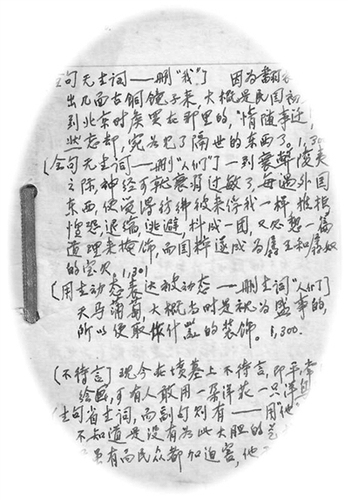 全句无主词——删"我"] 因为翻
出几面古铜镜子来,大概是民国初
到北京时候买在那里的,"情随事迁,
然忘却,宛如见了隔世的东西了。1,30
[全句无主词——删"人们"] 一到衰弊陵夷
之际,神经可就衰弱过敏了,每遇外国
东西,便觉得仿佛彼来俘我一样,推拒,
惶恐,退缩,逃避,抖成一团,又必想一篇
道理来掩饰,而国粹遂成为孱王和孱奴
的宝贝。1,301
[用主动态表达被动态——删主词"人们"]
天马葡萄,大概当时是视为盛事的,
所以便取作什器的装饰。1,300.
[不待言] 现今在坟墓上不待言,即平常
绘画,可有人敢用一朵洋花一只洋
主句省主词,而副句则有——用"他"
不知道是没有为此大胆的艺
虽有而民众都加迫害,他